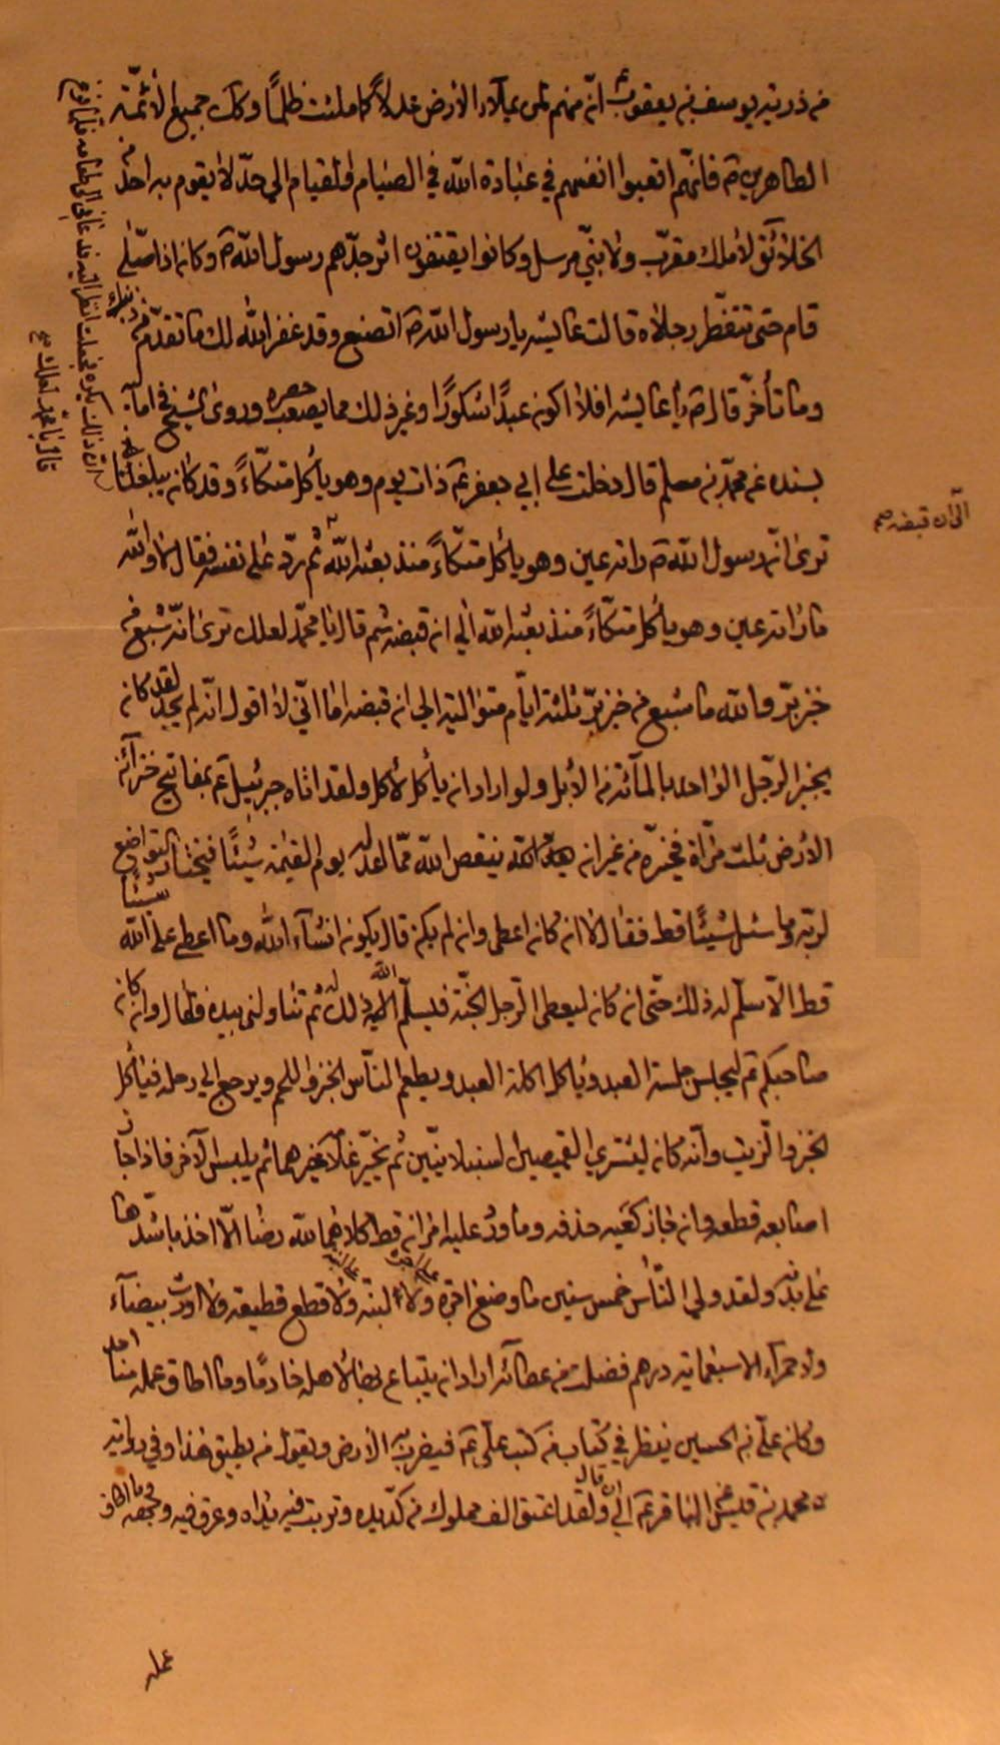 من ذرية يوسف بن يعقوب ع انه منهم لمن يملأ الارض عدلاً كما ملئت ظلمًا وكك جميع الأئمة
الطاهرين ع فانهم اتعبوا انفسهم في عبادة الله في الصيام والقيام الي حدّ لا يقوم به احد من
الخلائق لا ملك مقرّب ولا نبيّ مرسل وكانوا يقتفون اثر جدّهم رسول الله ص وكان اذا صلّى
قام حتى تتفطّر رجلاه قالت عايشه يا رسول الله ص اتصنع وقد غفر الله لك ما تقدّم من ذنبك
وما تأخّر قال ص يا عايشه افلا اكون عبدًا شكورًا وغير ذلك مما يصعب حصره وروى الشيخ في اماليه
بسنده عن محمد بن مسلم قال دخلت على ابي جعفر ع ذات يوم وهو يأكل متكّاءً وقد كان يبلغنا
ترى انّ رسول الله ص راته عين وهو يأكل متكّاءً منذ بعثه الله ثم ردّ على نفسه فقال لا والله
ما راته عين وهو يأكل متكّاءً منذ بعثه الله الي ان قبضه ثم قال يا محمّد لعلك ترى انّه شبع من
خبز برّ والله ما شبع من خبز برّ ثلثة ايّام متوالية الي ان قبضه اما انّي لا اقول انّه لم يجد لقد كان
يجيز الرّجل الواحد بالمائة من الابل ولو اراد ان يأكل لأكل ولقد اتاه جبرئيل ع بمفاتيح خزائن
الأرض ثلث مرّاة فخيّره من غير ان ينقص الله ممّا اعدّ له يوم القيمة شيئًا فيختار التواضع
لربّه وما سئل شيئًا قط فقال لا ان كان اعطى وان لم يكن قال يكون انشآء الله وما اعطى على الله شيئًا
قط الّا سلّم له ذلك حتى ان كان ليعطي الرجل الجنّة فيسلّم الله ذلك له ثم تناولني بيده فقال وان كان
صاحبكم ع ليجلس جلسة العبد ويأكل اكلة العبد ويطعم النّاس الخبز واللحم ويرجع الي رحله فيأكل
الخبز والزيت وانّه كان ليشتري القميصين السنبلانيّين ثم يخيّر غلامه خيرهما ثم يلبس الآخر فاذا جاز
اصابعه قطعه وان جاز كعبه حذفه وما ورد عليه امران قط كلاهما لله رضا الّا اخذ باشدّهما
على بدنه ولقد ولي النّاس خمس سنين ما وضع اجرة على اجرة ولا لبنة على لبنة ولا قطع قطيعة ولا اورث بيضآء
ولا حمرآء الا سبعمائة درهم فضلت من عطائه اراد ان يبتاع بها لاهله خادمًا وما اطاق عمله منا احد
وكان علي بن الحسين ينظر في كتاب من كتب علي ع فيضرب به الارض ويقول من يطيق هذا وفي رواية
محمد بن قيس عن الباقر ع الي ان قال ولقد اعتق الف مملوك من كدّ يده وتربت فيه يداه وعرق فيه وجهه وما اطاق
عمله
الى ان قبضه صح